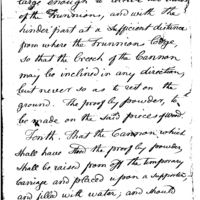 large enough to
of the Trunnions, and with the
hinder part at a sufficient distance
from where the Trunnions
so that the Breech of the Cannon
may be inclined in any direction
but never so as to rest on the
ground. The proof by powder, to
be made on the said pieces
Tenth. That the Cannon which
shall have the proof by powder,
shall be raised from off the temporary
carriage and placed upon a
and filled with water; and should